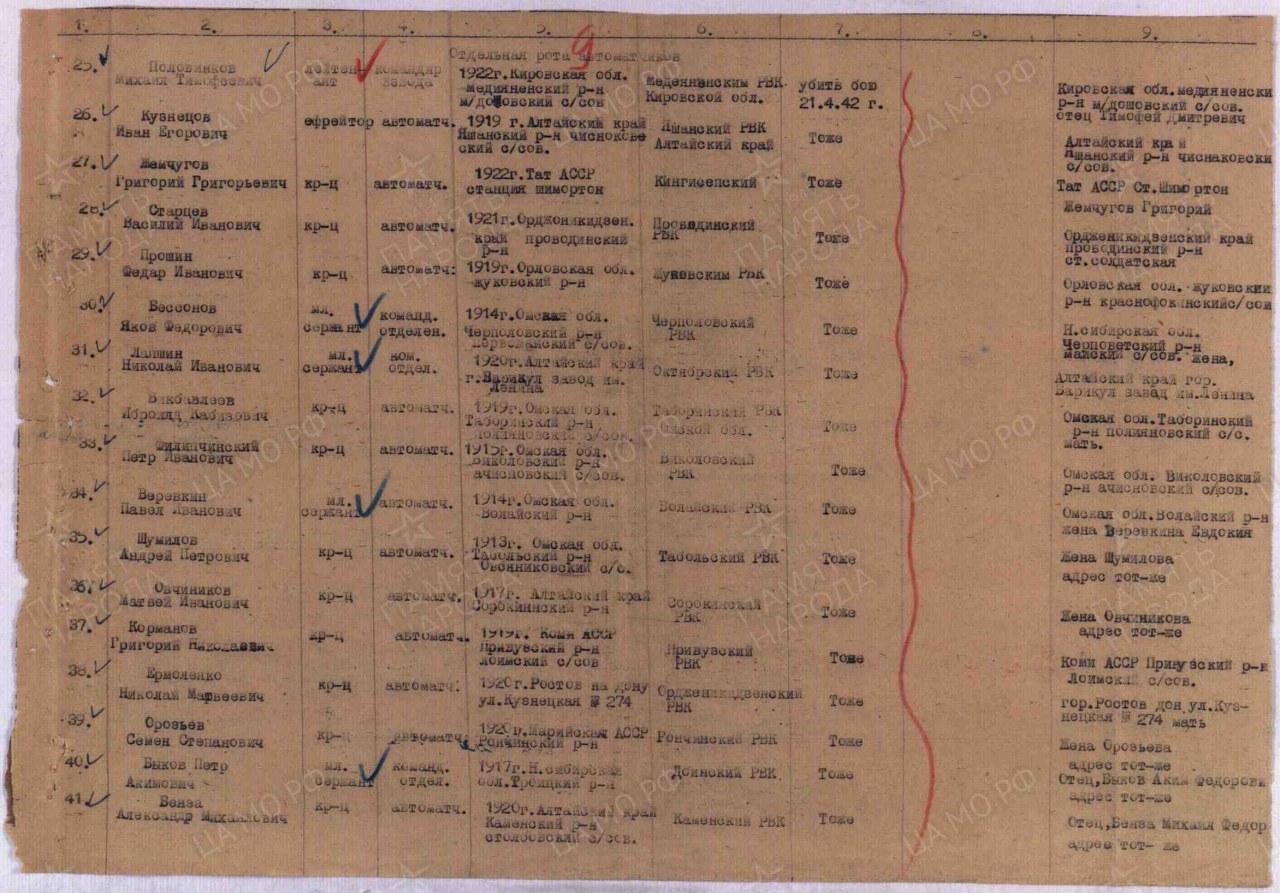 1. 2. 3. 4. 5. 6. 7. 8. 9.
9
Отдельная рота автоматчиков
25. Половинков лейтен- командир 1922г.Кировская обл. Медеяненским РВК убить бою Кировская обл.медияненски
Михаил Тимофеевич ант взвода медияненский р-н Кировской обл. 21.4.42 г. р-н м/дошовский с/сов.
м/дошовский с/сов отец Тимофей Дмитревич
26. Кузнецов ефрейтор автоматч. 1919 г.Алтайский край Яшанский РВК Тоже Алтайский край
Иван Егорович Яшанский р-н чиснокове Алтайский край Яшанский р-н чиснаковски
ский с/сов. с/сов.
27. Жемчугов 1922г.Тат АССР
Григорий Григорьевич кр-ц автоматч. станция шимортон Кингисепский Тоже Тат АССР Ст.Шимортон
Жемчугов Григорий
28. Старцев 1921г.Орджоникидзен. Проводинский
Василий Иванович кр-ц автоматч. край проводинский РВК Тоже Ордженикидзенский край
р-н Прободинский р-н
ст.солдатская
29. Прошин автоматч: 1919г.Орловская обл. Жуковским РВК Орловская обл. жуковский
Федар Иванович кр-ц жуковский р-н Тоже р-н краснофокинскийс/сов
30. Бессонов мл. команд. 1914г.Омская обл. Черполовский Н.сибирская обл.
Яков Федорович сержант отделен. Черполовский р-н РВК Тоже Черповетский р-н
Первоманский с/сов. майский с/сов. жена,
31. Лапшин мл. ком. 1920г.Алтайский край Октябрский РВК Тоже Алтайский край гор.
Николай Иванович сержант отдел. г.Барикул завод им. Барикул завад им.Ленина
Ленина
32. Бикбавлеев кр-ц автоматч. 1919г.Омская обл. Таборинский РВК Тоже Омская обл.Таборинский
Кабизович Таборинский р-н Омской обл. р-н полияновский с/с.
с/сов. мать.
33. Филипчинский кр-ц автоматч. 1915г.Омская обл. Виколовский Тоже Омская обл. Виколовский
Петр Иванович Виколовский р-н РВК р-н ачисновский с/сов.
ачисновский с/сов.
34. Веревкин мл. автоматч. 1914г.Омская обл. Волайский РВК Тоже Омская обл.Волайский р-н
Павел Иванович сержант Волайский р-н жена Веревкина Евдокия
35. Шумилов кр-ц автоматч. 1913г. Омская обл. Табольский РВК Тоже Жена Шумилова
Андрей Петрович Табольский р-н адрес тот-же
Овсяниковский с/с.
36. Овчиников кр-ц автоматч. 1917г. Алтайский край Сорокинский Тоже Жена Овчиникова
Матвей Иванович Сорокинский р-н РВК адрес тот-же
37. Корманов кр-ц автоматч. 1919г. Коми АССР Привузский Тоже Коми АССР Привузский р-н
Григорий Николаевич Привузский р-н РВК Лоимский с/сов.
Лоимский с/сов
38. Ермоленко кр-ц автоматч: 1920г.Ростов на дону Ордженикидзенский Тоже гор.Ростов дон ул.Куз-
Николай Матвеевич ул.Кузнецкая № 274 РВК нецкая № 274 мать
39. Орозьев кр-ц автоматч. 1920г.Марийская АССР Рончинский РВК Тоже Жена Орозьева
Семен Степанович Рончинский р-н адрес тот-же
40. Быков Петр мл. команд. 1917г.Н.сибирская Доинский РВК Тоже Отец,Быков Аким Федорови
Акимович сержант отдел. обл.Троицкий р-н адрес тот-же
41. Бенза кр-ц автоматч. 1920г.Алтайский край Каменский РВК Тоже Отец,Бенза Михаил Федор
Александр Михайлович Каменский р-н адрес тот- же
столбовский с/сов.
ЦАМО РФ
ПАМЯТЬ НАРОДА